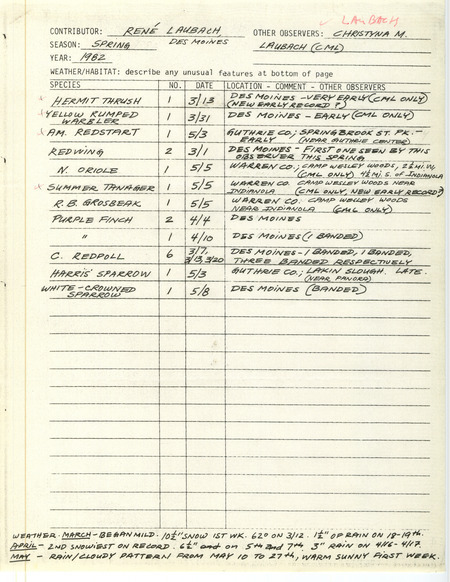 LAUBACH
CONTRIBUTOR: RENÉ LAUBACH OTHER OBSERVERS: CHRISTYNA M.
SEASON: SPRING DES MOINES LAUBACH (CML)
YEAR: 1982
WEATHER/HABITAT: describe any unusual features at bottom of page
SPECIES NO. DATE LOCATION - COMMENT - OTHER OBSERVERS
HERMIT THRUSH 1 3/13 DES MOINES - VERY EARLY (CML ONLY)
(NEW EARLY RECORD?)
YELLOW RUMPED
WARBLER 1 3/31 DES MOINES - EARLY (CML ONLY)
AM. REDSTART 1 5/3 GUTHRIE CO; SPRINGBROOK ST. PK. -
EARLY (NEAR GUTHRIE CENTER)
REDWING 2 3/1 DES MOINES - FIRST ONE SEEN BY THIS
OBSERVER THIS SPRING
N. ORIOLE 1 5/5 WARREN CO.; CAMP WESLEY WOODS, 2½ MI. W.
(CML ONLY) 4½ MI. S. OF INDIANOLA
SUMMER TANAGER 1 5/5 WARREN CO. CAMP WESLEY WOODS NEAR
INDIANOLA (CML ONLY, NEW EARLY RECORD?)
R.B. GROSBEAK 1 5/5 WARREN CO. CAMP WESLEY WOODS
NEAR INDIANOLA (CML ONLY)
PURPLE FINCH 2 4/4 DES MOINES
" 1 4/10 DES MOINES (1 BANDED)
C. REDPOLL 6 3/7, 3/13, 3/20 DES MOINES - 1 BANDED, 1 BANDED,
THREE BANDED RESPECTIVELY
HARRIS' SPARROW 1 5/3 GUTHRIE CO.; LAKIN SLOUGH. LATE.
(NEAR PANORA)
WHITE-CROWNED
SPARROW 1 5/8 DES MOINES (BANDED)
WEATHER - MARCH - BEGAN MILD. 10½" SNOW 1ST WK. 62° ON 3/12. 1½" OF RAIN ON 18-19th.
APRIL - 2ND SNOWIEST ON RECORD. 6½" on 5th and 7th. 3" RAIN ON 4/16-4/17
MAY - RAIN/CLOUDY PATTERN FROM MAY 10 TO 27th, WARM SUNNY FIRST WEEK.